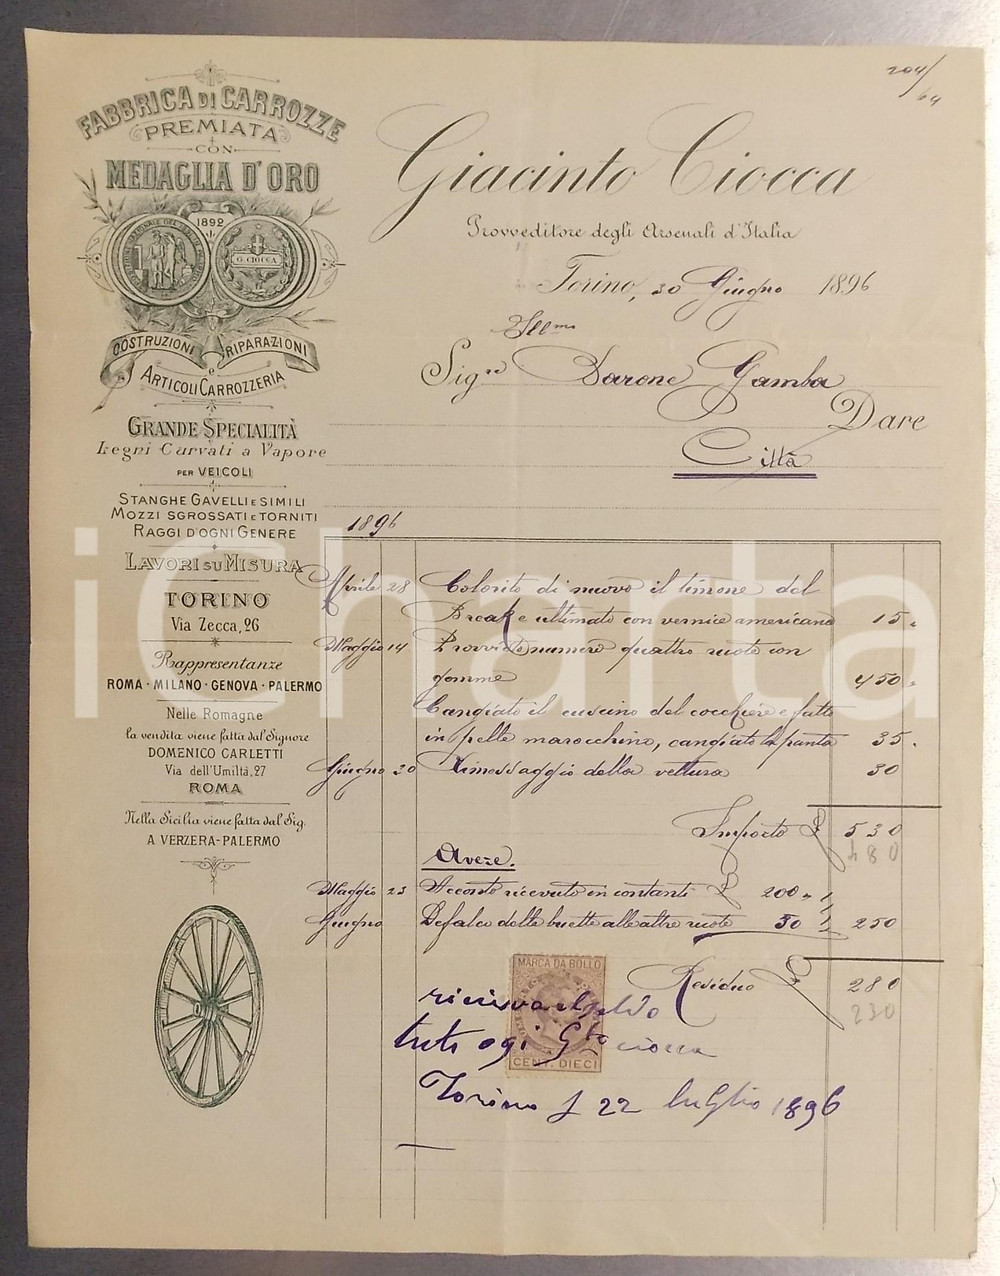 204/64
FABBRICA DI CARROZZE
PREMIATA
CON
MEDAGLIA D'ORO
1892
G. CIOCCA
COSTRUZIONI e RIPARAZIONI
ARTICOLI CARROZZERIA
GRANDE SPECIALITÀ
Legni Curvati a Vapore
PER VEICOLI
STANGHE GAVELLI E SIMILI
MOZZI SGROSSATI E TORNITI
RAGGI D'OGNI GENERE
LAVORI SU MISURA
TORINO
Via Zecca, 26
Rappresentanze
ROMA - MILANO - GENOVA - PALERMO
Nelle Romagne
la vendita viene fatta dal Signore
DOMENICO CARLETTI
Via dell'Umiltà, 27
ROMA
Nella Sicilia viene fatta dal Sig.
A VERZERA - PALERMO
Giacinto Ciocca
Provveditore degli Arsenali d'Italia
Torino, 30 Giugno 1896
Illmo
Sigre Barone Gamba
Dare
Città
1896
Aprile 28 Colorito di nuovo il timone del
Break e ultimato con vernice americana 15
Maggio 14 Provvisto numero quattro ruote con
gomme 450
Cangiato il cuscino del cocchiere e fatto
in pelle marocchino, cangiato la panta 35
Giugno 20 Rimessaggio della vettura 30
Importo £ 530
480
Avere.
Maggio 23 Acconto ricevuto in contanti £ 200
Giugno Defalco delle buette alle altre ruote 50 250
Residuo £ 280
230
MARCA DA BOLLO
CENT. DIECI
ricievuto il saldo
tuto ogi Gto ciocca
Torino £ 22 luglio 1896
iCharta